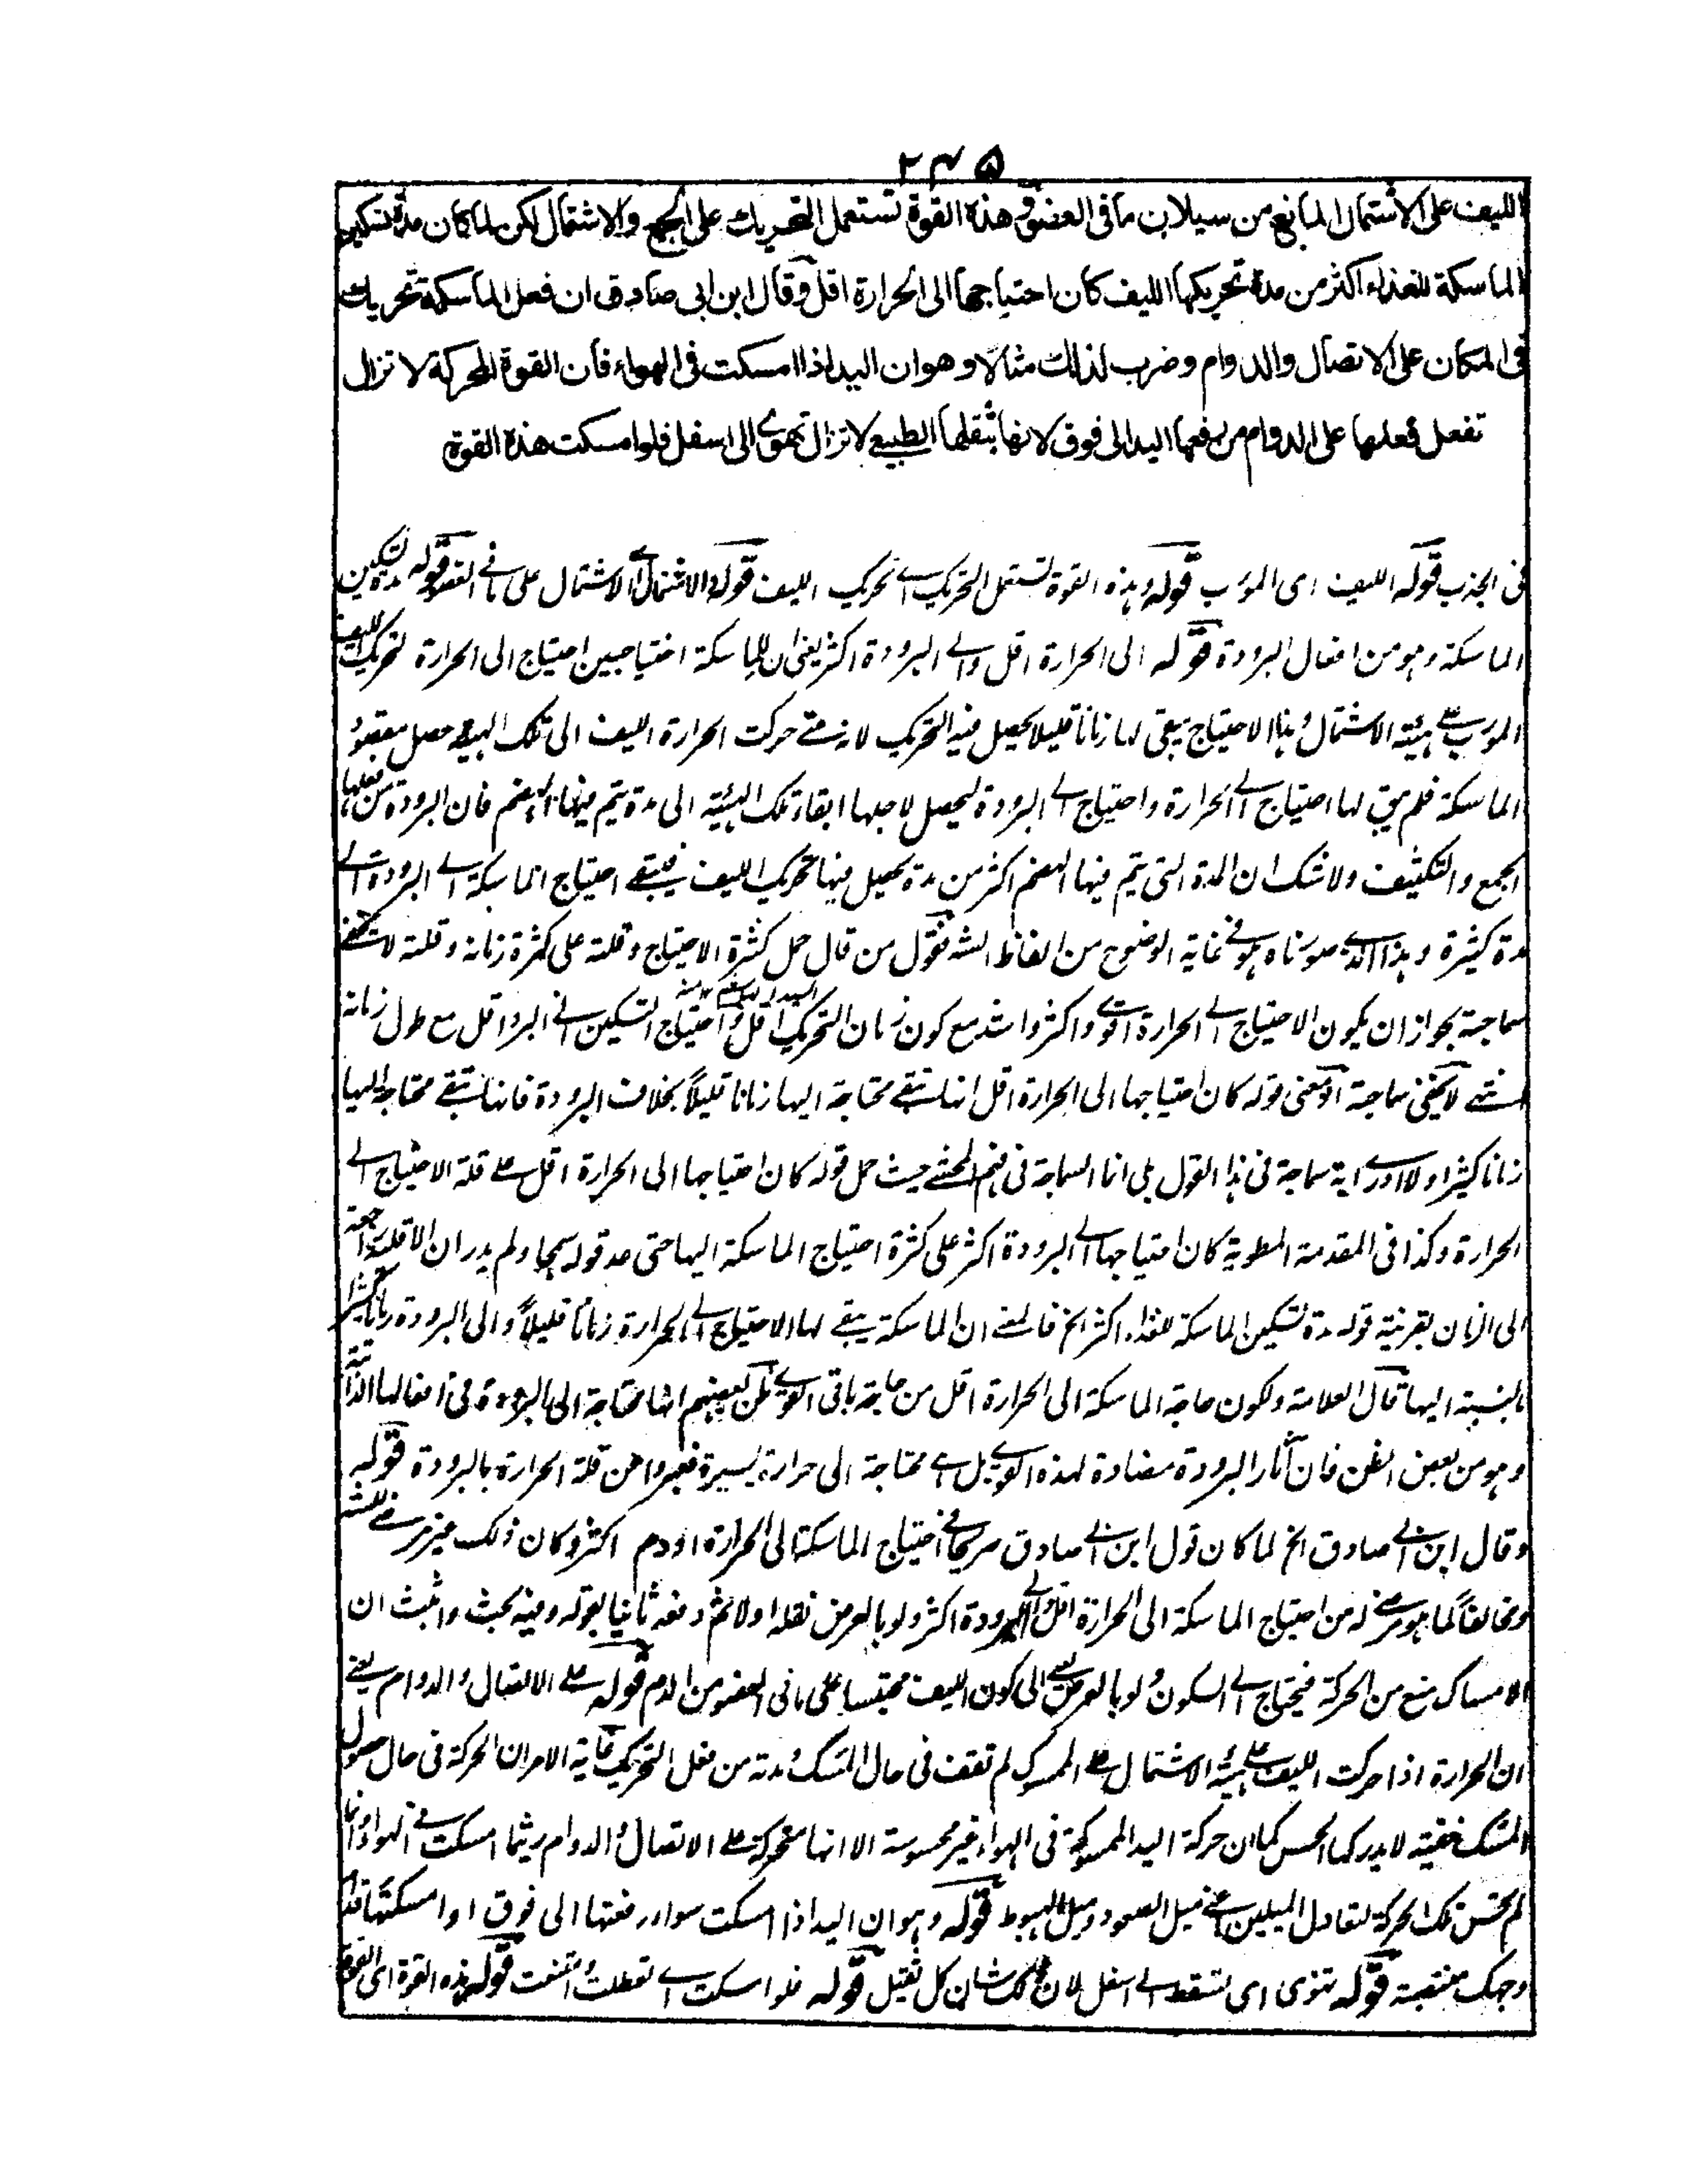 ۲۴۵
الليف على الاشتمال المانع من سيلان ما في العضو و هذه القوة تستعمل التحريك على الجمع والاشتمال لكن لما كان مدة تسكين
الماسكة للغذاء اكثر من مدة تحريكها الليف كان احتياجها الى الحرارة اقل وقال ابن ابى صادق ان فعل الماسكة تحريك
فى المكان على الاتصال والدوام وضرب لذلك مثالا وهو ان اليد اذا امسكت فى الهواء فان القوة المحركة لا تزال
تفعل فعلها على الدوام من رفعها اليد الى فوق لانها بثقلها الطبيعي لا تزال تهوى الى اسفل فلو امسكت هذه القوة
فى الجذب قوله الليف اى المورب قوله وهذه القوة تستعمل التحريك اى تحريك الليف قوله والاشتمال اى الاشتمال على ما فى العضو قوله مدة تسكين
الماسكة وهو من افعال البرودة قوله الى الحرارة اقل والى البرودة اكثر يعنى ان للماسكة احتياجين احتياج الى الحرارة لتحريك الليف
المورب على هيئة الاشتمال وهذا الاحتياج يبقى لها زمانا قليلا يحصل فيه التحريك لانه متى حركت الحرارة الليف الى تلك الهيئة حصل مقصود
الماسكة فلم يبق لها احتياج الى الحرارة واحتياج الى البرودة ليحصل لاجلها ابقاء تلك الهيئة الى مدة يتم فيها الهضم فان البرودة من فعلها
الجمع والتكثيف ولا شك ان المدة التى يتم فيها الهضم اكثر من مدة يحصل فيها تحريك الليف فيبقى احتياج الماسكة الى البرودة الى
مدة كثيرة وهذا الذى صورناه هو فى غاية الوضوح من الفاظ الشه فقول من قال حمل كثرة الاحتياج وقلته على كثرة زمانه وقلته لا تخفى
سماجته بجواز ان يكون الاحتياج الى الحرارة اقوى واكثر واشد مع كون زمان التحريك اقل واحتياج التسكين الى البرد اقل مع طول زمانه
انتهى لا يخفى سماجته اذ معنى قوله كان احتياجها الى الحرارة اقل انها تبقى محتاجة اليها زمانا قليلاً بخلاف البرودة فانها تبقى محتاجة اليها
زمانا كثيرا ولا ادرى اية سماجة فى هذا القول بلى انما السماجة فى فهم المحشى حيث حمل قوله كان احتياجها الى الحرارة اقل على قلة الاحتياج الى
الحرارة وكذا فى المقدمة المطوية كان احتياجها الى البرودة اكثر على كثرة احتياج الماسكة اليها حتى عد قوله سمجا ولم يدر ان الاقلية راجعة
الى الزمان بقرينة قوله مدة تسكين الماسكة للغذاء اكثر الخ فالمعنى ان الماسكة يبقى لها الاحتياج الى الحرارة زمانا قليلاً والى البرودة زمانا كثيرا
بالنسبة اليها قال العلامة ولكون حاجة الماسكة الى الحرارة اقل من حاجة باقى القوى ظن بعضهم انها محتاجة الى البرودة فى افعالها الذاتية
وهو من بعض الظن فان آثار البرودة مضادة لهذه القوى بل هى محتاجة الى حرارة يسيرة فعبروا عن قلة الحرارة بالبرودة قوله
وقال ابن ابى صادق الخ لما كان قول ابن ابى صادق صريحا فى احتياج الماسكة الى الحرارة ادوم اكثر وكان ذلك غير مرضى للشه
ومخالفاً لما هو مرضى له من احتياج الماسكة الى الحرارة اقل والى البرودة اكثر ولو بالعرض نقله اولا ثم دفعه ثانيا بقوله وفيه بحث واثبت ان
الامساك منع من الحركة فيحتاج الى السكون ولو بالعرض يعنى الى كون الليف محتبسا على ما فى العضو من الدم قوله على الاتصال والدوام يعنى
ان الحرارة اذا حركت الليف على هيئة الاشتمال على الممسوك لم تقف فى حال المسك مدته من فعل التحريك غاية الامر ان الحركة فى حال حصول
المسك خفية لا يدركها الحس كما ان حركة اليد الممسوكة فى الهواء غير محسوسة الا انها متحركة على الاتصال والدوام ريثما امسكت فى الهواء وانما
لم تحس تلك الحركة لتعادل الميلين اعنى ميل الصعود وميل الهبوط قوله وهو ان اليد اذا امسكت سواء رفعتها الى فوق او امسكتها
وجهك منتصبة قوله تهوى اى تسقط الى اسفل لان ذلك شان كل ثقيل قوله فلو امسكت اى تعطلت وامتنعت قوله هذه القوة اى القوة